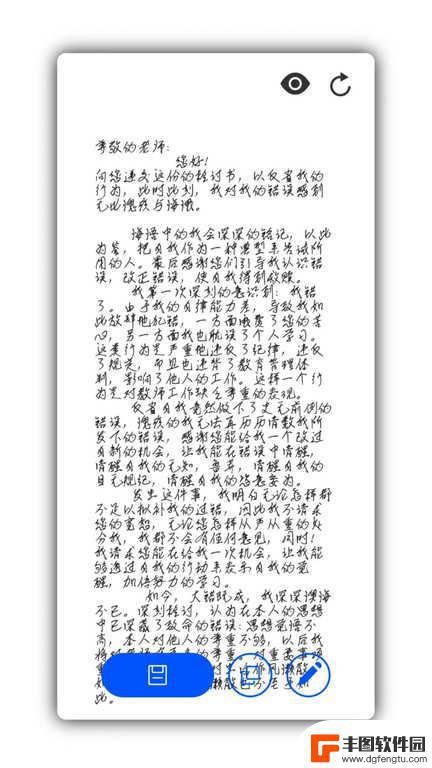 尊敬的老师：
您好！
向您递交这份的检讨书，以反省我的
行为，此时此刻，我对我的错误感到
无比愧疚与海憾。
海语中的我会深深的铭记，以此
为鉴，把自我作为一种典型来告诫所
用的人。最后感谢您们引导我认识错
误，改正错误，使自我得到救赎。
我第一次深刻的意识到：我错
了。由于我的自律能力差，导致我如
此放肆地犯错，一方面浪费了您的苦
心，另一方面我也耽误了个人学习。
这类行为是严重地违反了纪律，违反
了规定，而且也违背了教育管理体
制，影响了他人的工作。这样一个行
为是对教师工作缺乏尊重的表现。
反省自我竟然做下了史无前例的
错误，愧疚的我无法再历历清数我所
发下的错误，感谢您能给我一个改过
自新的机会，让我能在错误中清醒，
清醒自我的无知，鲁莽，清醒自我的
目无规纪，清醒自我的恣意妄为。
发生这件事，我明白无论怎样都
不足以拟补我的过错，因此我不请求
您的宽恕，无论您怎样从严从重的处
分我，我都不会有任何意见，同时！
我请求您能在给我一次机会，让我能
够透过自我的行动来表示自我的觉
醒，加倍努力的学习。
如今，大错既成，我深深懊悔
不已。深刻检讨，认为在本人的思想
中已深藏了致命的错误：思想觉悟不
高，本人对他人的尊重不够，以后我
此。
丰图软件园
www.dgfengtu.com